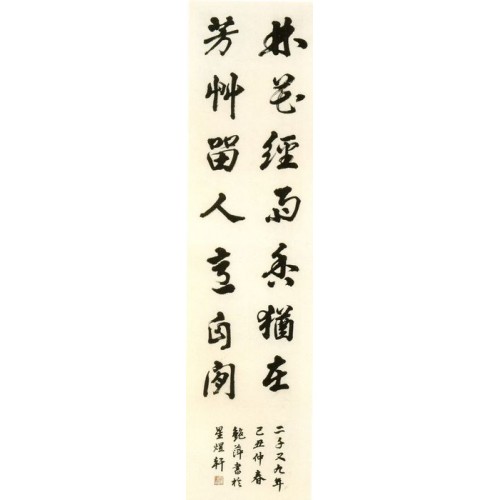 林花經雨香猶在
芳艸留人意自閑
二千又九年
己丑仲春
鮑萍書於
星煜軒